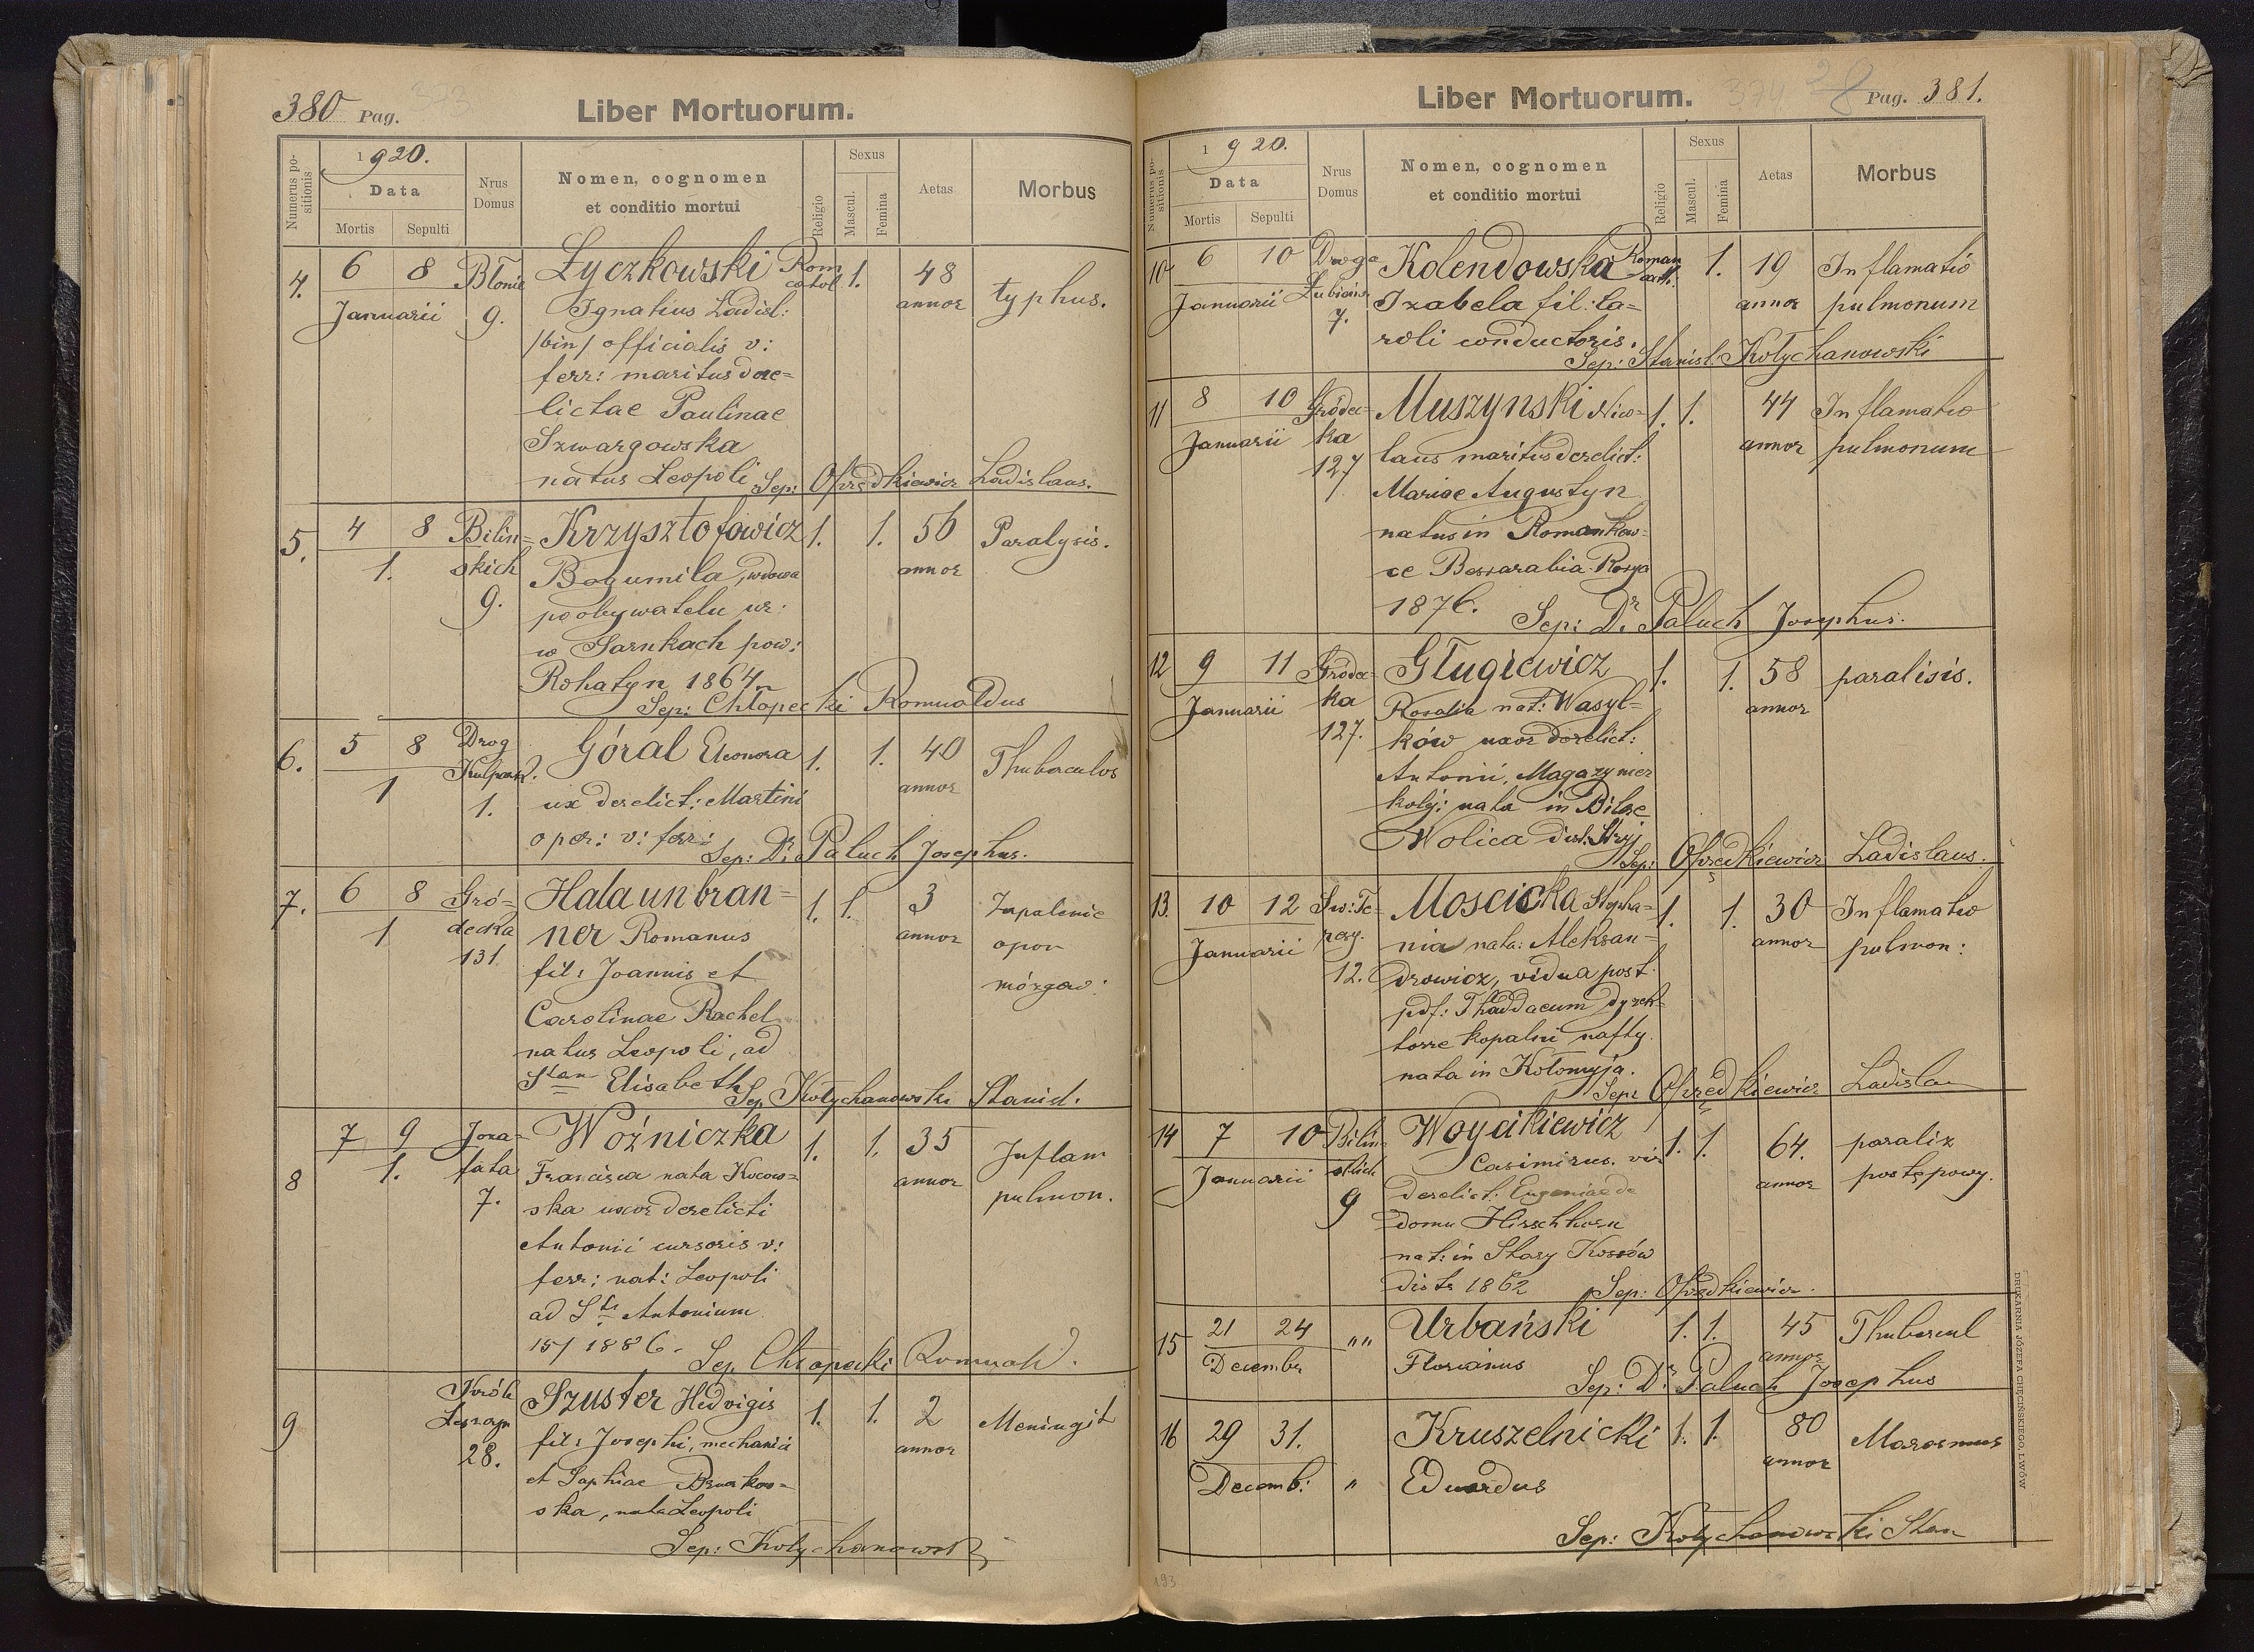 380 Pag.
Liber Mortuorum.
Numerus positionis
1920.
Data
Mortis
Sepulti
Nrus Domus
Nomen, cognomen
et conditio mortui
Religio
Sexus
Mascul.
Femina
Aetas
Morbus
4. 6 8 Błonie Łyczkowski Rom 1. 48 typhus.
Januarii 9. Ignatius Ladisl: cathol annor
/bin/ officialis v:
ferr: maritus dere=
lictae Paulinae
Szwargowska
natus Leopoli Sep: Ofrędkiewicz Ladislaus.
5. 4 8 Bilin= Krzysztofowicz 1. 1. 56 Paralysis.
1. skich Bogumila, wdowa annor
9. po obywatelu ur:
w Sarnkach pow:
Rohatyn 1864
Sep: Chłopecki Romualdus
6. 5 8 Drog Góral Eleonora 1. 1. 40 Thuberculos
1 Kulpark. ux derelict: Martini annor
1. oper: v: ferr:
Sep: Dr. Paluch Josephus.
7. 6 8 Gró= Halaunbran= 1. 1. 3 Zapalenie
1 decka ner Romanus annor opon
131 fil: Joannis et mózgow:
Carolinae Rachel
natus Leopoli, ad
Stan Elisabeth Sep Kotychanowski Stanisl.
8 7 9 Joza= Woźniczka 1. 1. 35 Inflam
1. fata Francisca nata Kocow= annor pulmon.
7. ska uxor derelicti
Antonii cursoris v:
ferr: nat: Leopoli
ad St. Antonium
15/1 1886. Sep Chłopecki Romuald.
9 Król. Szuster Hedvigis 1. 1. 2 Meningit
28. fil: Josephi, mechanici annor
et Sophiae
ska, nata Leopoli
Sep: Kotychanowski
Liber Mortuorum.
374
Pag. 381.
Numerus positionis
1920.
Data
Mortis
Sepulti
Nrus Domus
Nomen, cognomen
et conditio mortui
Religio
Sexus
Mascul.
Femina
Aetas
Morbus
10 6 10 Droga Kolendowska Roman 1. 19 Inflamatio
Januarii 7. Izabela fil: Ca= cath. annor pulmonum
roli conductoris.
Sep: Stanisl. Kotychanowski
11 8 10 Gródec= Muszynski Nico= 1. 1. 44 Inflamatio
Januarii ka laus maritus derelict: annor pulmonum
127 Mariae Augustyn
natus in Romankow=
ce Bessarabia Rosya
1876. Sep: Dr. Paluch Josephus.
12 9 11 Gródec= Gługiewicz 1. 1. 58 paralisis.
Januarii ka Rosalia nat: Wasyl= annor
127. ków uxor derelict:
Antonii, Magazynier
kolej: nata in Bilcze
Wolica dist. Stryj
Sep: Ofrędkiewicz Ladislaus.
13. 10 12 Św: Te= Moscicka Stepha= 1. 1. 30 Inflamatio
Januarii resy. nia nata: Aleksan= annor pulmon:
12. drowicz, vidua post
pdf: Thaddaeum dyrek=
torre kopalni nafty
nata in Kołomyja.
Sep: Ofrędkiewicz Ladisla
14 7 10 Bilin= Woycikiewicz 1. 1. 64. paraliz
Januarii skich Casimirus. vir annor postępowy.
9 derelict. Eugeniae de
domu Hirschhorn
nat: in Stary Kossów
distr 1862 Sep: Ofrędkiewicz.
15 21 24 „„ Urbański 1. 1. 45 Thubercul
Decembr Florianus annor
Sep: Dr. Paluch Josephus
16 29 31. Kruszelnicki 1. 1. 80 Marasmus
Decemb: „ Eduardus annor
Sep: Kotychanowski Stan
193
DRUKARNIA JÓZEFA CHĘCIŃSKIEGO, LWÓW